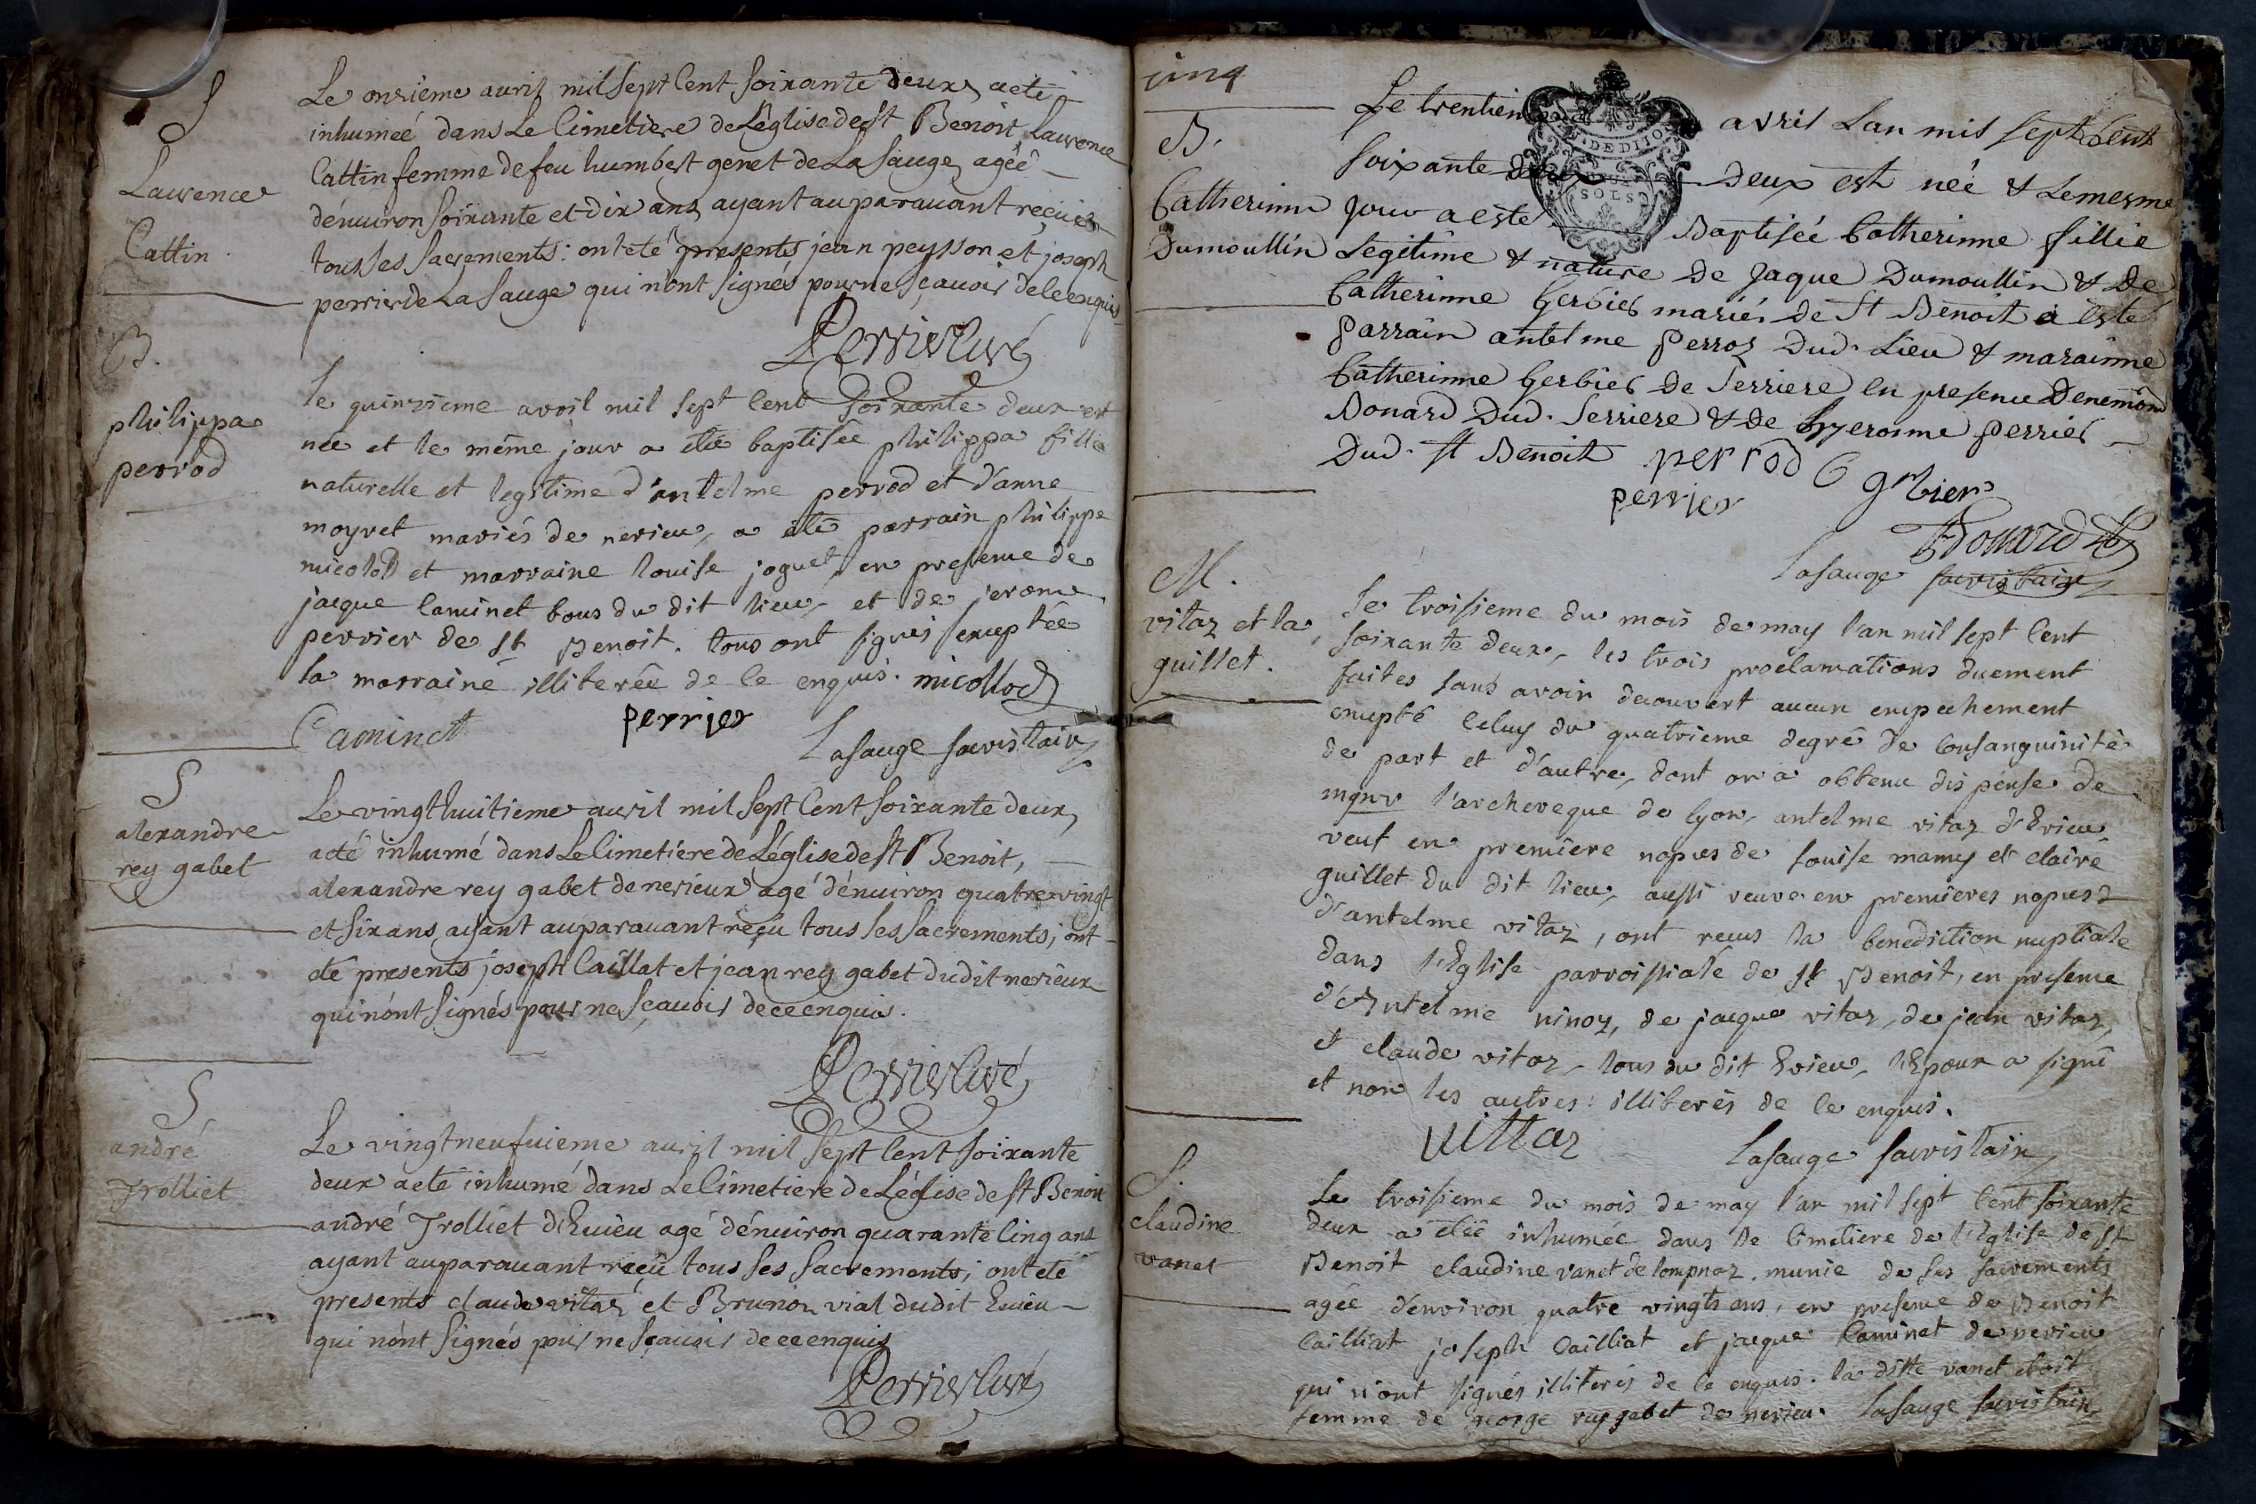 S
Laurence
Cattin
Le onzième avril mil sept cent soixante deux, a eté
inhumeé dans Le Cimetiere de L'église de st Benoit, Laurence
Cattin femme de feu humbert genet de La sauge, ageé
d'enuiron soixante et dix ans ayant auparauant reçu
tous ses sacrements: ont eté presents jean peysson et joseph
perrier de La sauge qui n'ont signés pour ne sçauoir de ce enquis
Perrier Curé
B.
philippa
perrod
le quinzieme avril mil sept cent soixante deux est
née et le même jour a été baptisée philippa fille
naturelle et legitime d'antelme perrod et d'anne
moyret mariés de nerieu, a été parrain philippe
micolod et marraine louise joguet, en presence de
jacque caminet tous du dit lieu, et de jerome
perrier de st Benoit. tous ont signés exceptée
la marraine illiterée de ce enquis. micollod
Caminet perrier
Lasauge sacristain
S
alexandre
rey gabet
Le vingt huitieme auril mil sept Cent soixante deux,
a eté inhumé dans Le Cimetiere de L'église de st Benoit,
alexandre rey gabet de nerieux agé d'enuiron quatre vingt
et six ans aiant auparauant reçu tous ses sacrements; ont
eté presents joseph Caillat et jean rey gabet dudit nerieux
qui n'ont signés pour ne sçauoir de ce enquis.
Perrier Curé
S
andré
Trolliet
Le vingt neufuieme auril mil sept cent soixante
deux a eté inhumé dans Le Cimetiere de L'église de st Benoit
andré Trolliet d'Euieu agé d'enuiron quarante cinq ans
ayant auparauant reçû tous ses sacrements; ont eté
presents claude vitaz et Brunon vial dudit Euieu
qui n'ont signés pour ne sçauoir de ce enquis
Perrier Curé
cinq
B.
Catherinne
Dumoullin
Le trentien avril Lan mil sept Cent
soixante deux est neé & Lemesme
DEDIT
SOLS
jour a esté Baptiseé Catherinne fillie
Legitime & nature de Jaque Dumoullin & de
Catherinne Gerbier mariés de St Benoit a esté
Parrain antelme Perroz Dud. Lieu & marainne
Catherinne Gerbier de Serriere en presence Denemond
Bonard Dud. Serriere & de hyerosme perrier
Dud. st Benoit perrod C gerbier
perrier
Bonard
Lasauge sacristain
M.
vitaz et la
guillet.
Le troisieme du mois de may l'an mil sept cent
soixante deux, les trois proclamations duement
faites sans avoir decouvert aucun empechement
excepté celuy du quatrieme degré de consanguinité
de part et d'autre, dont on a obtenu dispense de
mgnr l'archeveque de lyon, antelme vitaz d'Evieu
veuf en premiere nopces de louise mamy et claire
guillet du dit lieu, aussi veuve en premieres nopces
d'antelme vitaz, ont recus la benediction nuptiale
dans l'Eglise parroissiale de st Benoit, en presence
d'Antelme ninoz, de jacque vitaz, de jean vitaz,
et claude vitaz, tous du dit Evieu, l'Epoux a signé
et non les autres illiterés de ce enquis.
vittaz Lasauge sacristain
S.
claudine
vanet
Le troisieme du mois de may l'an mil sept cent soixante
deux a été inhumée dans le cimetiere de l'Eglise de st
Benoit claudine vanet de lompnaz. munie de ses sacrements
agée d'environ quatre vingts ans, en presence de Benoit
Cailliat joseph Cailliat et jacque Caminet de nerieu
qui n'ont signés illiterés de ce enquis. la ditte vanet etoit
femme de george rey gabet de nerieu. Lasauge sacristain